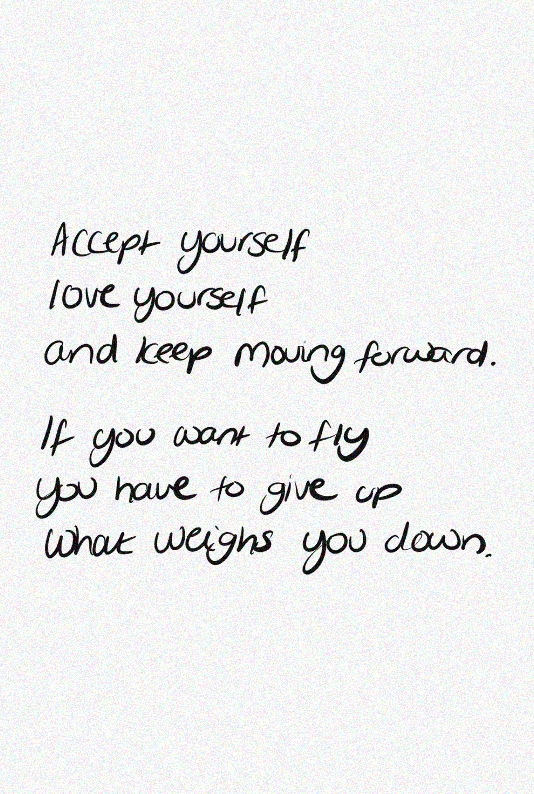 Accept yourself
love yourself
and keep moving forward.
If you want to fly
you have to give up
what weighs you down.